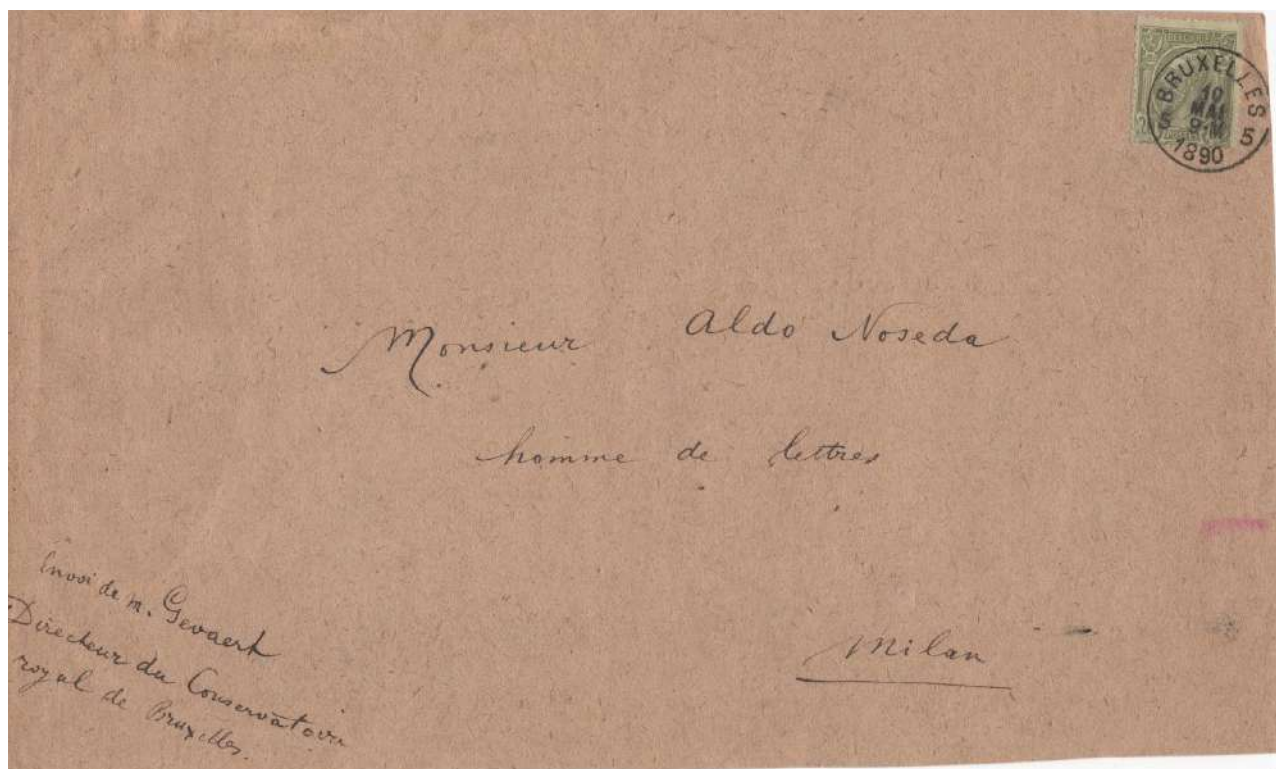 BELGIQUE
BRUXELLES
5 5
10
MAI
1890
Monsieur Aldo Noseda
homme de lettres
Envoi de m. Gevaert
Directeur du Conservatoire
royal de Bruxelles.
Milan